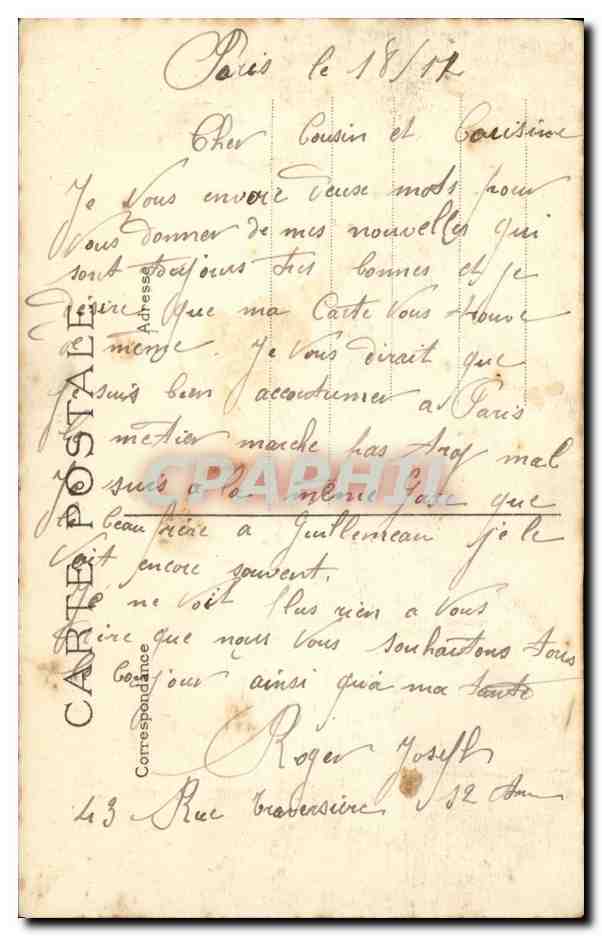 Paris le 18/12
Cher Cousin et Cousine
Je Vous envoie deux mots pour
Vous donner de mes nouvelles qui
sont toujours tres bonnes et je
Désire que ma Carte Vous trouve
de meme. Je Vous dirait que
Je suis bien accoutumer a Paris
le metier marche pas trop mal
Je suis a la même que
le beau frère a Guillemeau je le
Voit encore souvent.
Je ne Voit plus rien a Vous
Dire que nous Vous souhaitons tous
le bonjour ainsi qu'a ma tante
Roger Joseph
43 Rue traversière 12
CARTE POSTALE
Correspondance
Adresse
CPAPHIL